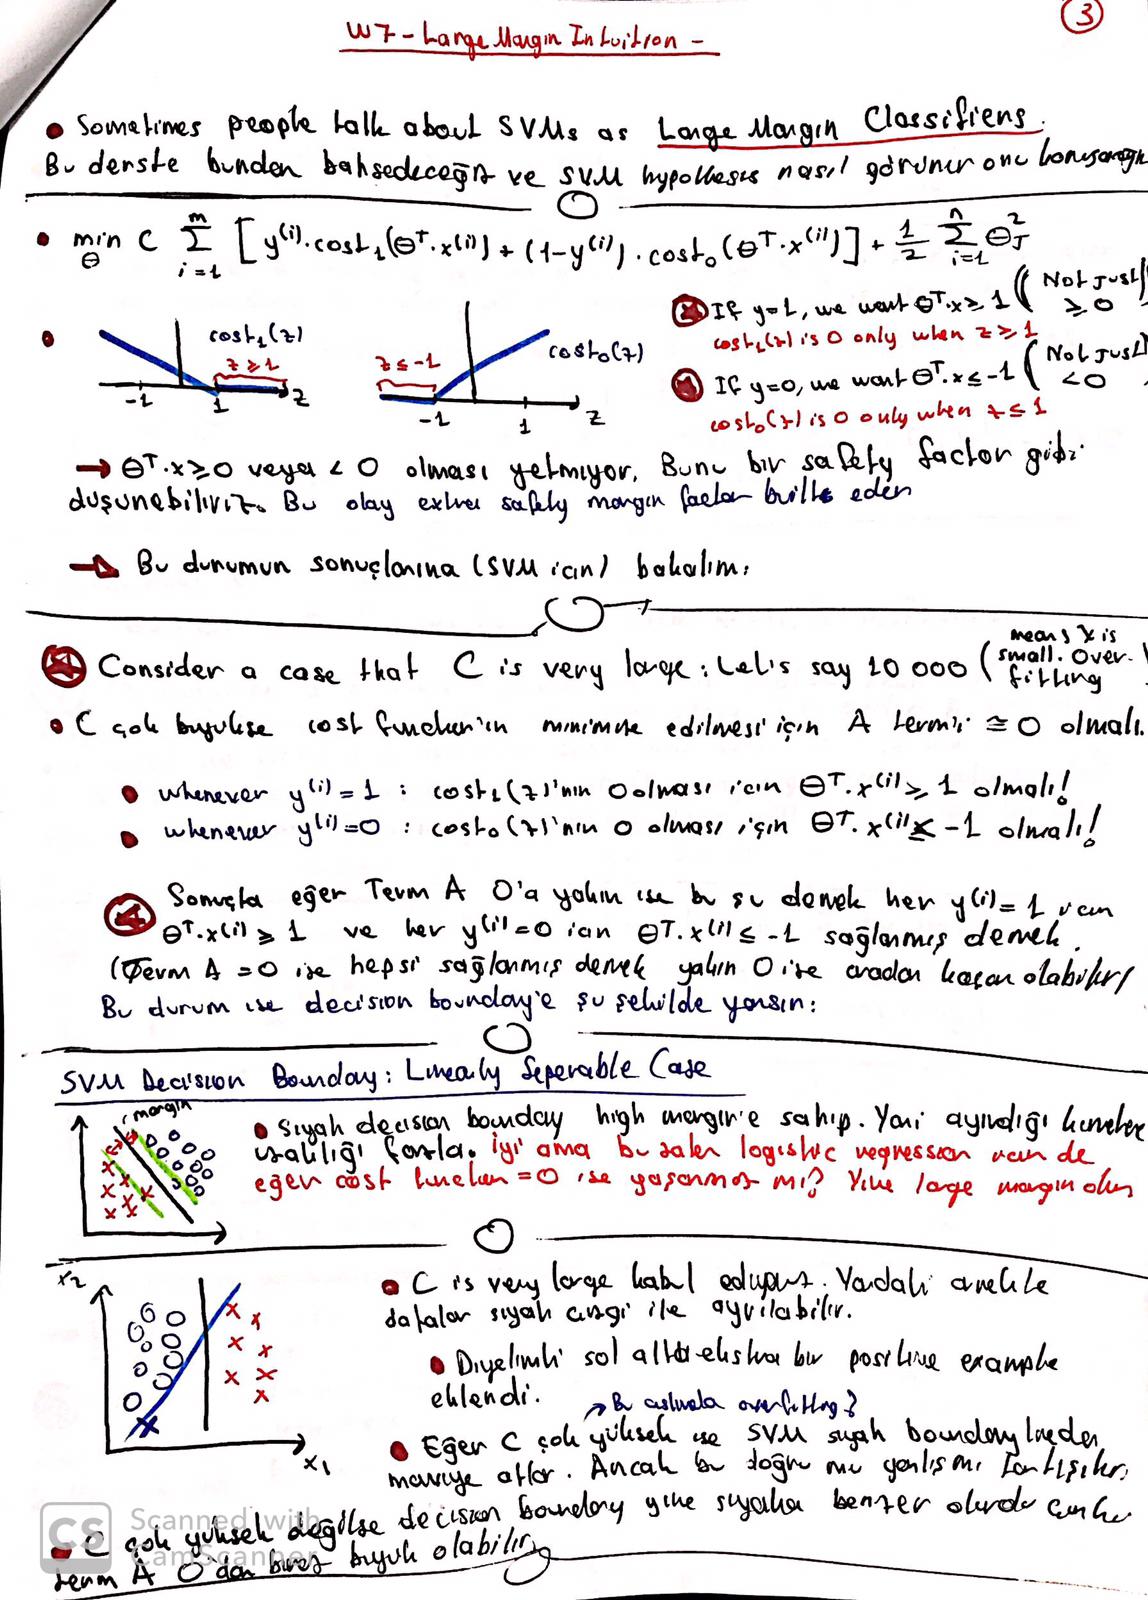 3
W7 - Large Margin Intuition -
• Sometimes people talk about SVMs as Large Margin Classifiers.
Bu derste bundan bahsedeceğiz ve SVM hypothesis nasıl görünür onu konuşacağız
• min_θ C Σ_{i=1}^{m} [y^(i).cost₁(θ^T.x^(i)) + (1-y^(i)).cost₀(θ^T.x^(i))] + 1/2 Σ_{i=1}^{n} θ_J^2
cost₁(z)
z ≥ 1
-1 1 z
z ≤ -1
cost₀(z)
-1 1 z
If y=1, we want θ^T.x ≥ 1 (Not just ≥ 0
cost₁(z) is 0 only when z ≥ 1
If y=0, we want θ^T.x ≤ -1 (Not just < 0
cost₀(z) is 0 only when z ≤ 1
→ θ^T.x ≥ 0 veya < 0 olması yetmiyor. Bunu bir safety factor gibi
düşünebiliriz. Bu olay extra safety margin factor build eder
→ Bu durumun sonuçlarına (SVM için) bakalım:
Consider a case that C is very large: Let's say 10 000 (means λ is small. Over-fitting)
• C çok büyükse cost function'ın minimize edilmesi için A terimi ≅ 0 olmalı.
• whenever y^(i) = 1 : cost₁(z)'nin 0 olması için θ^T.x^(i) ≥ 1 olmalı!
• whenever y^(i) = 0 : cost₀(z)'nin 0 olması için θ^T.x^(i) ≤ -1 olmalı!
Sonuçta eğer Term A 0'a yakın ise bu şu demek her y^(i) = 1 için
θ^T.x^(i) ≥ 1 ve her y^(i) = 0 için θ^T.x^(i) ≤ -1 sağlanmış demek.
(Term A = 0 ise hepsi sağlanmış demek yakın 0 ise aradan kaçan olabilir)
Bu durum ise decision boundary'e şu şekilde yansır:
SVM Decision Boundary: Linearly Seperable Case
margin
• Siyah decision boundary high margin'e sahip. Yani ayırdığı kümelere
uzaklığı fazla. İyi ama bu zaten logistic regression için de
eğer cost function = 0 ise yaşanmaz mı? Yine large margin olur
x₂
x₁
• C is very large kabul ediyoruz. Yandaki örnekte
datalar siyah çizgi ile ayrılabilir.
• Diyelimki sol alta ekstra bir positive example
eklendi.
→ Bu aslında overfitting?
• Eğer C çok yüksek ise SVM siyah boundary'den
maviye atlar. Ancak bu doğru mu yanlış mı tartışılır.
• C çok yüksek değilse decision boundary yine siyaha benzer olurdu çünkü
term A 0'dan biraz büyük olabilir
CS Scanned with
CamScanner